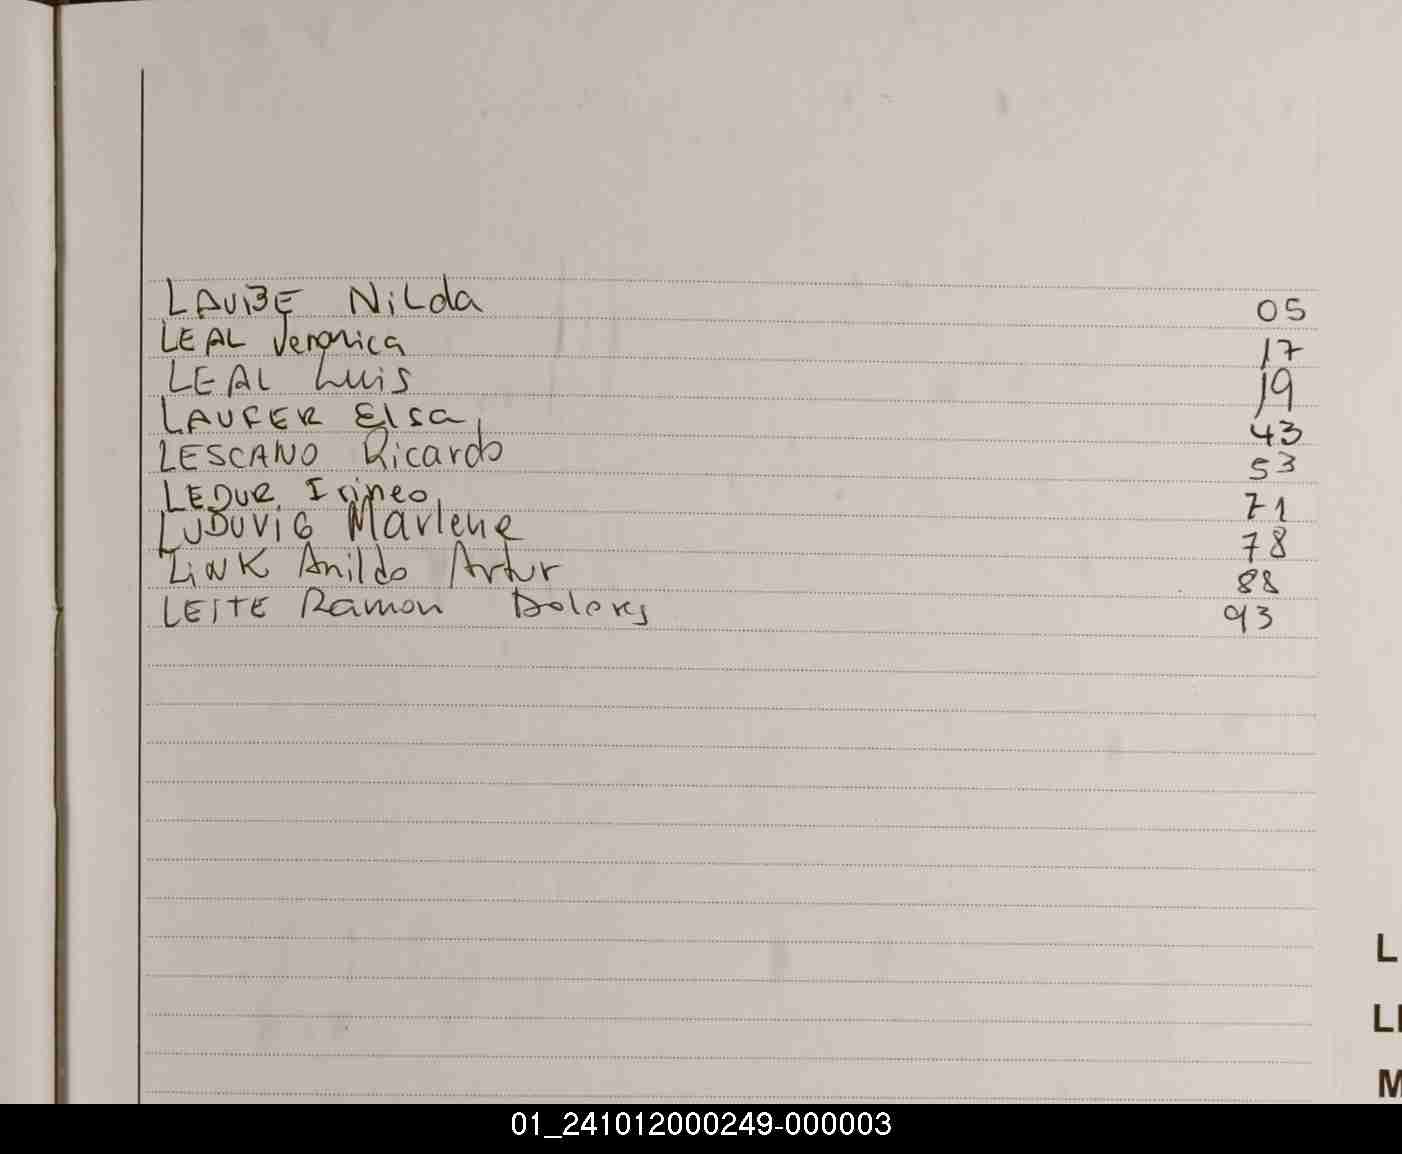 LAUBE Nilda 05
LEAL Veronica 17
LEAL Luis 19
LAUFER Elsa 43
LESCANO Ricardo 53
LEDUR Irineo 71
LUDUVIG Marlene 78
LINK Anildo Artur 88
LEITE Ramon Dolores 93
L
LL
M
01_241012000249-000003